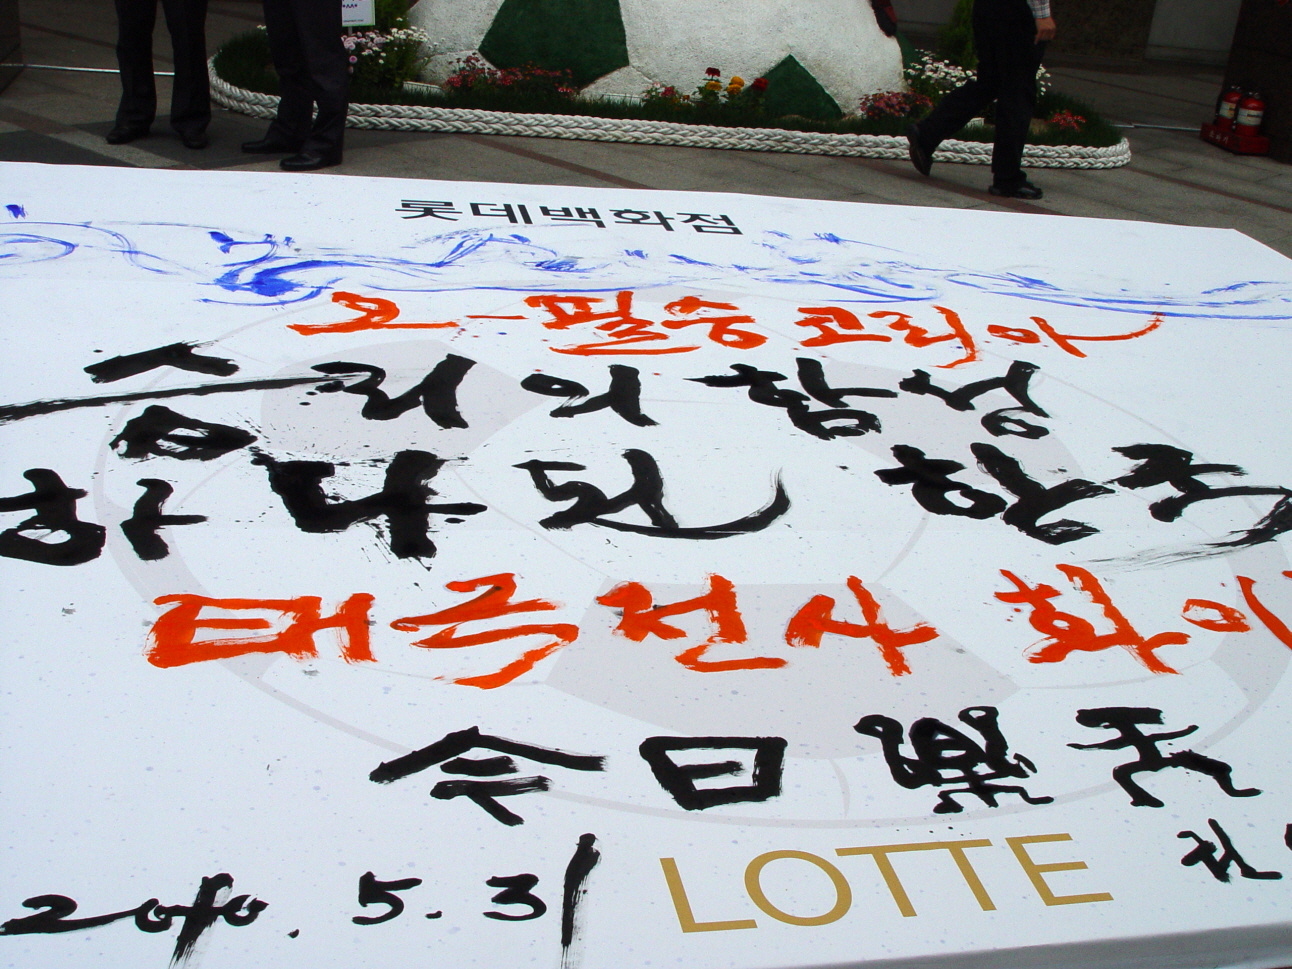 롯데백화점
오-필승 코리아
승리의 함성
하나된 한국
태극전사 화이
今日樂天
LOTTE
2010.5.31